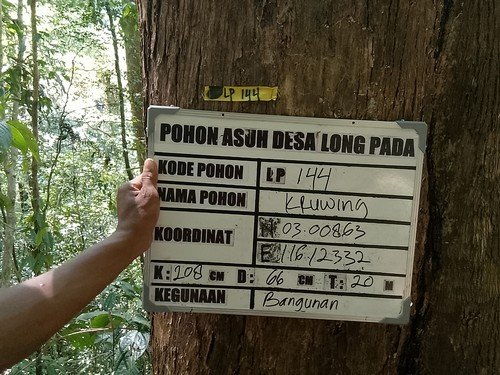 LP 144
POHON ASUH DESA LONG PADA
KODE POHON LP 144
NAMA POHON Kruwing
KOORDINAT N 03.00863
E 116.12332
K: 208 CM D: 66 CM T: 20 M
KEGUNAAN Bangunan